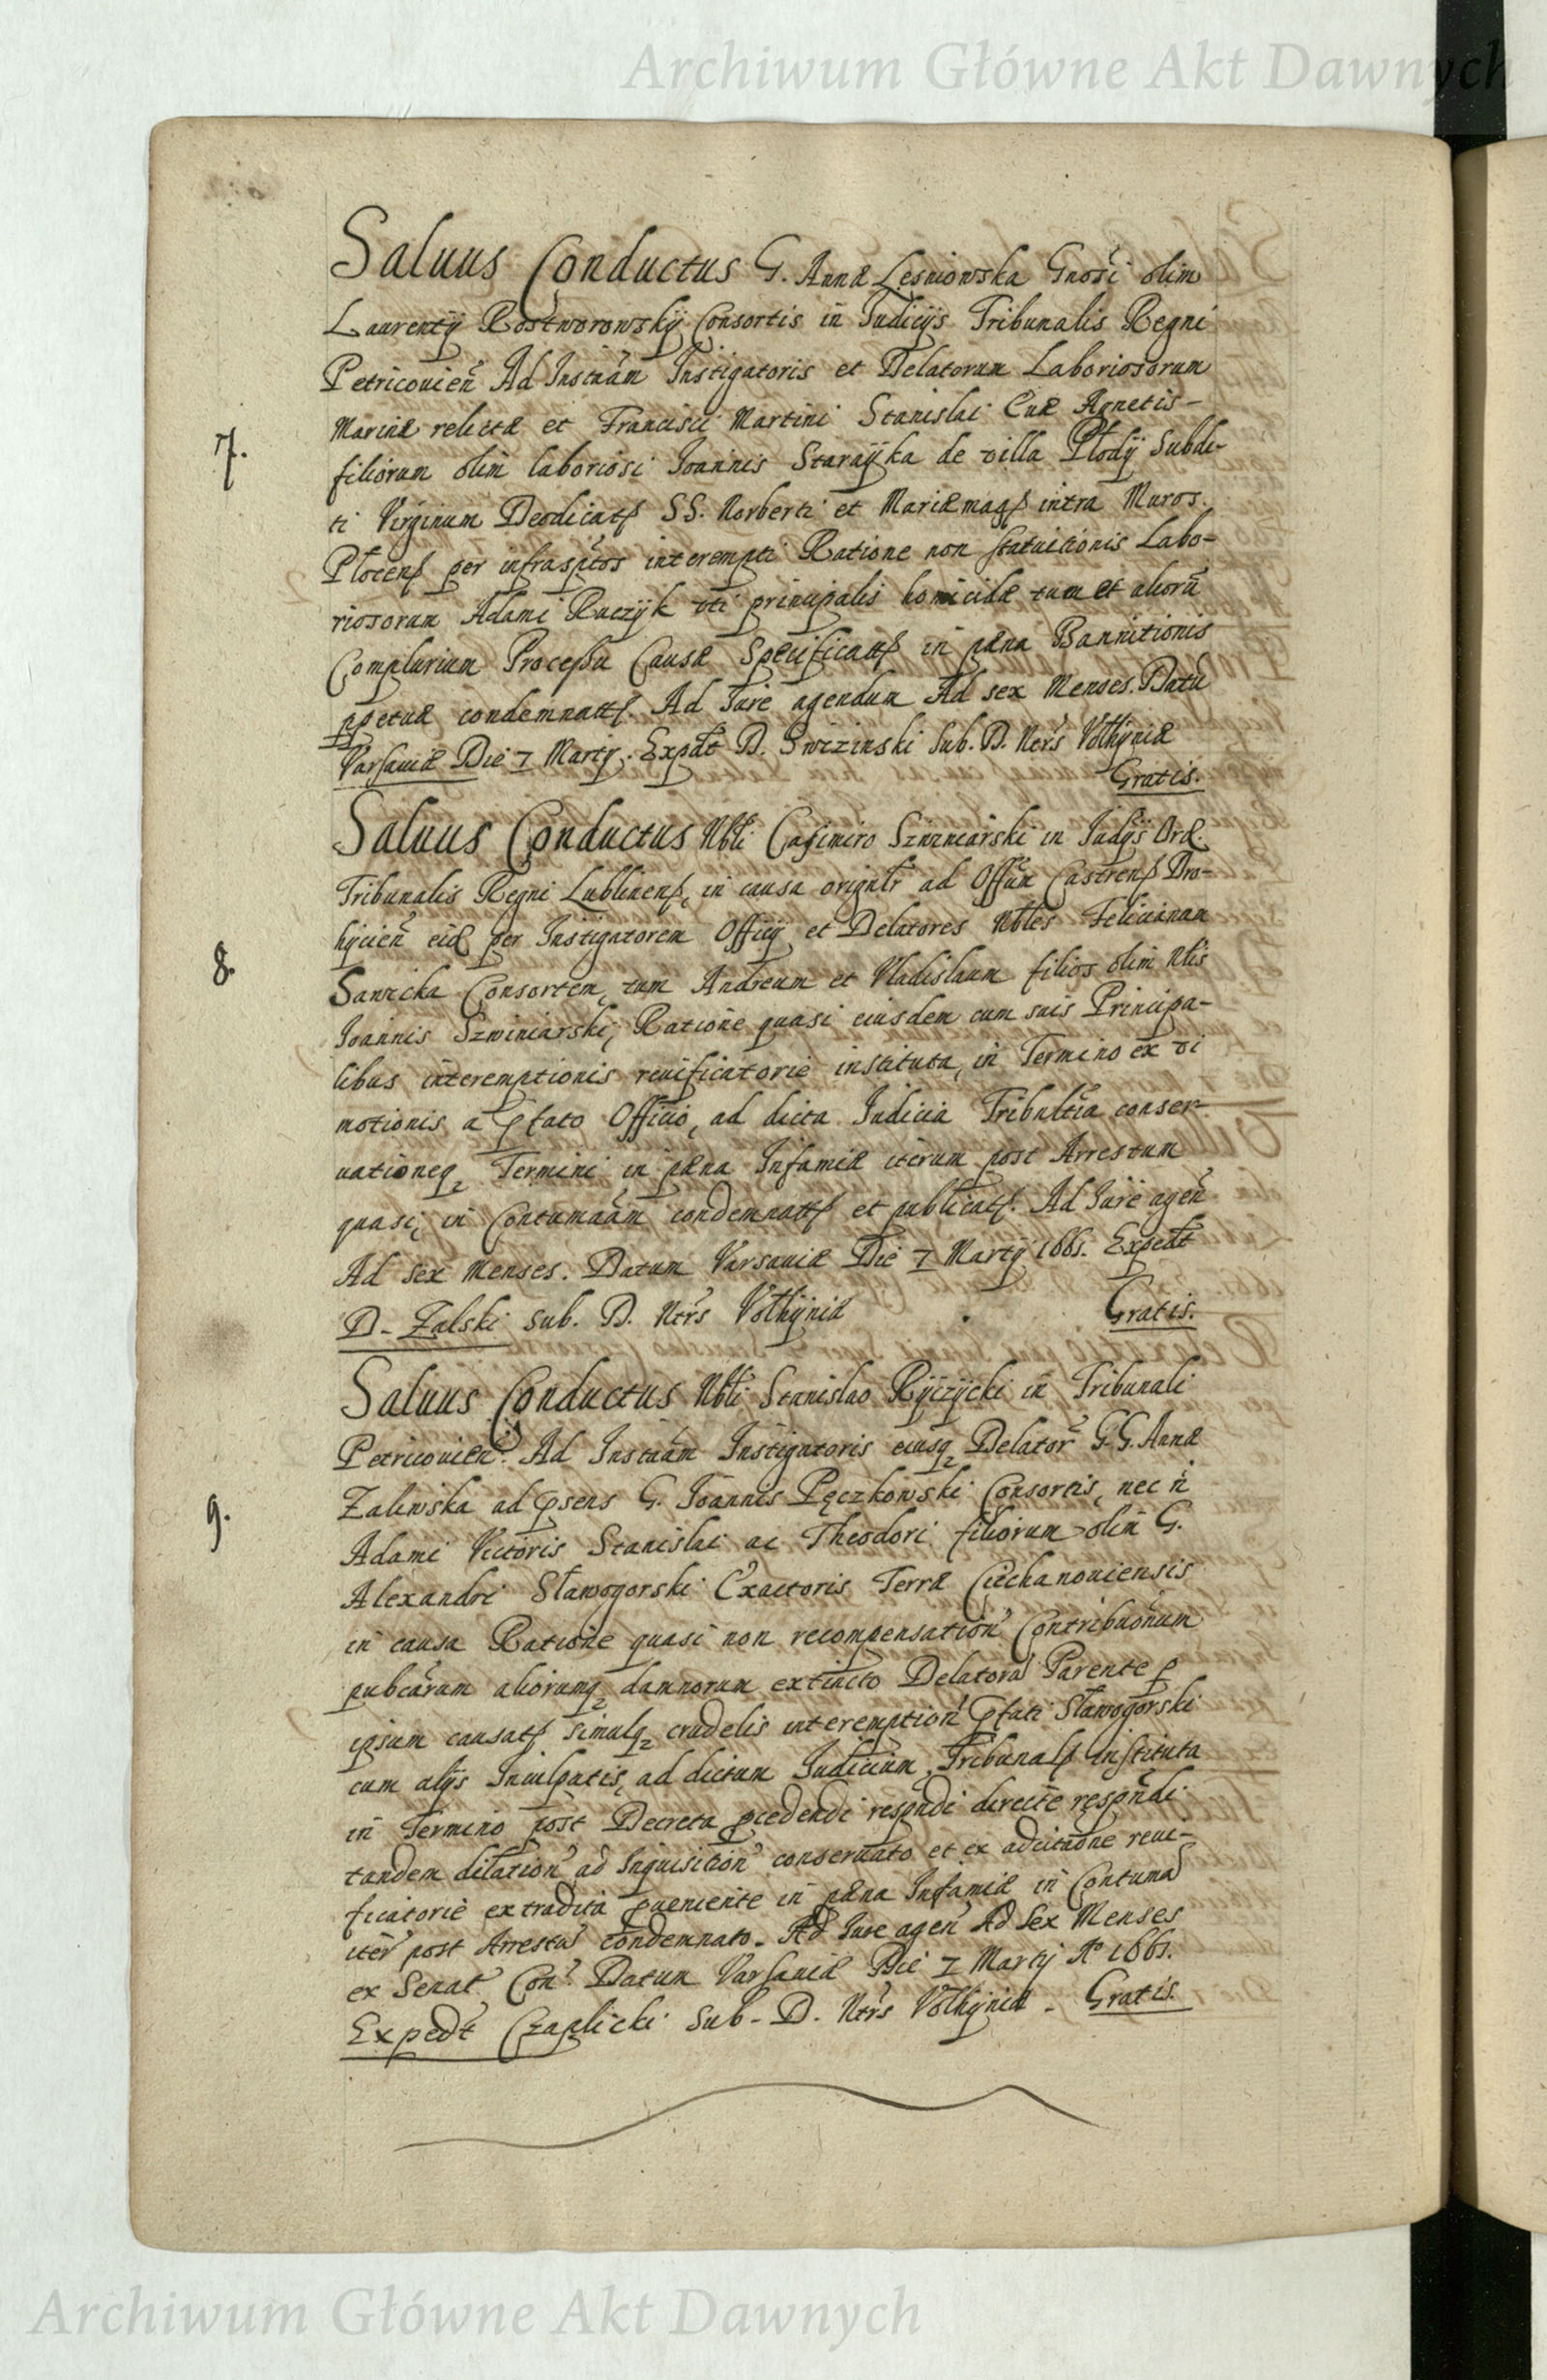 Archiwum Główne Akt Dawnych
Saluus Conductus G. Annæ Lesniowska Gnosi olim
Laurentÿ Rostworowskÿ Consortis in Judicÿs Tribunalis Regni
Petricouien Ad Instnãm Instigatoris et Delatorum Laboriosorum
Marinæ relictæ et Francisci Martini Stanislai Euæ Agnetis-
7.
filiorum olim laboriosi Joannis Staraÿka de villa Płodÿ Subdi-
ti Virginum Deodicatẜ SS. Norberti et Mariæ magẜ intra Muros.
Płocenẜ per infrasptos interempti Ratione non statuitionis Labo-
riosorum Adami Raczÿk vti principalis homicidæ tum et aliorũ
Complurium Processu Causæ Specificattẜ in pæna Bannitionis
ppetuæ condemnattẜ. Ad Jure agendum Ad sex Menses. Datũ
Varsauiæ Die 7 Martÿ. Expedt D. Swizinski Sub. D. Ncrs Vołhÿniæ
Gratis.
Saluus Conductus Nbli Casimiro Szwiniarski in Judÿs Ord.
Tribunalis Regni Lublinenẜ, in causa originlr ad Offũm Castrenẜ Dro-
hiciẽn eid per Instigatorem Officÿ et Delatores Nbles Felicianam
8.
Sawicka Consortem, tum Andream et Vladislaum filios olim Nlis
Joannis Szwiniarski, Ratione quasi eiusdem cum suis Principa-
libus interemptionis reuificatorie instituta, in Termino ex vi
motionis a pfato Officio, ad dicta Judicia Tribnltia conser-
uationeq Termini in pæna Infamiæ iterum post Arrestum
quasi, in Contumaãm condemnattẜ et publicatẜ. Ad Jure agen
Ad sex Menses. Datum Varsauiæ Die 7 Martÿ 1661. Expedt
D. Zalski sub. D. Ncrs Vołhÿniæ
Gratis.
Saluus Conductus Nbli Stanislao Rÿczÿcki in Tribunali
Petricouien. Ad Instnãm Instigatoris eiusq Delator G.G. Annæ
Zaliwska ad psens G. Joannis Pęczkowski Consortis, nec n
9.
Adami Victoris Stanislai ac Theodori filiorum olim G.
Alexandri Sławogorski Exactoris Terræ Ciechanouiensis
in causa Ratione quasi non recompensation Contribuonum
pubcarum aliorumq damnorum extincto Delatorũ Parente p
ipsum causatẜ simulq crudelis interemption pfati Sławogorski
cum alÿs Inculpatis, ad dictum Judicium Tribunalẜ instituta
in Termino post Decreta pcedendi respndi directe respndi
tandem dilation ad Inquisition conseruato et ex adcitaone reui-
ficatorie extradita pueniente in pæna Infamiæ in Contumã
iter post Arrestũ condemnato. Ad Jure agen Ad Sex Menses
ex Senat Con. Datum Varsauiæ Die 7 Martÿ Ao 1661.
Expedt Czaplicki sub. D. Ncrs Vołhÿniæ. Gratis.
Archiwum Główne Akt Dawnych